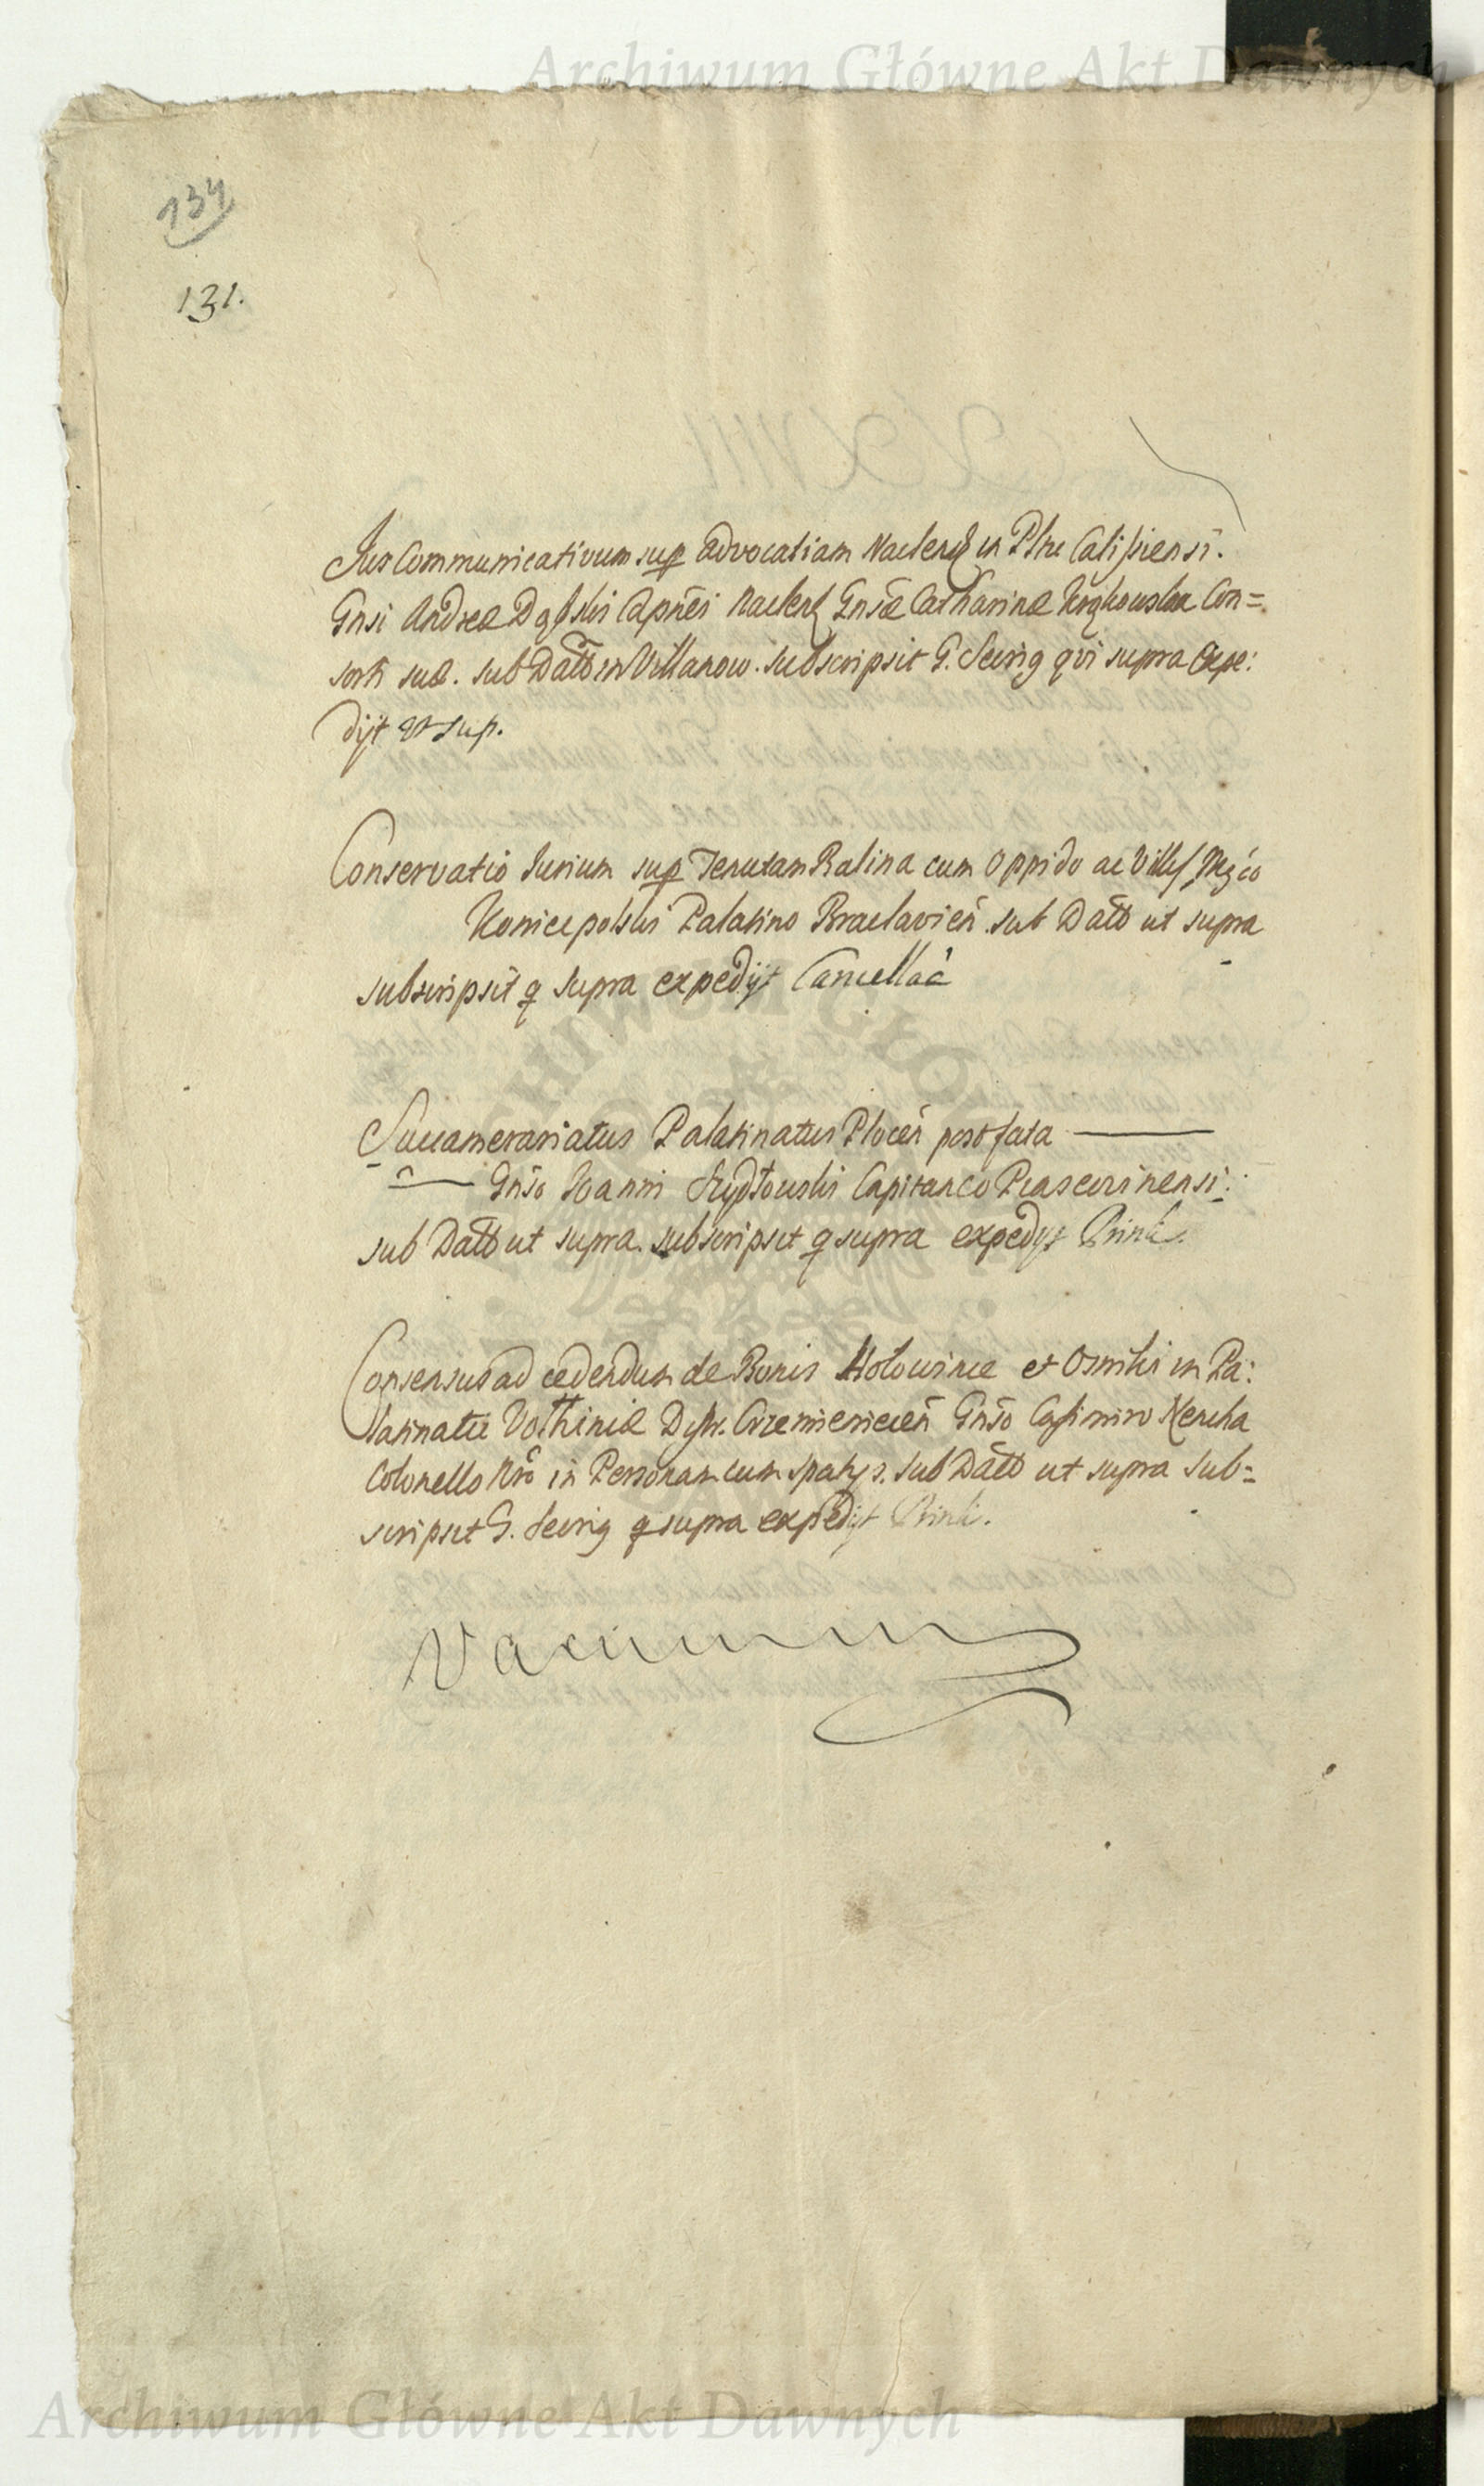 Archiwum Główne Akt Dawnych
134
131.
Jus Communicativum sup Advocatiam Naclen in Pltu Calissiensi.
Gnsi Andreæ Dąbski Capnei Naclen Gnsæ Catharinæ Con=
sorti suæ. sub Datt in Villanow. subscripsit G. Seirig qvi supra Expe:
dijt ut sup.
Conservatio Jurium sup Tenutam Ralina cum Oppido ac Villis Mgco
Koniecpolski Palatino Braclavien sub Datt ut supra
subscripsit q supra expedijt Cancellaa
Succamerariatus Palatinatus Plocen post fata
Gnso Joanni Szydłowski Capitaneo Prascirinensi:
sub Datt ut supra. subscripsit q supra expedijt Brink.
Consensus ad cedendum de Bonis Hołowince et Osniki in Pa:
latinatu Volhiniæ Dystr. Crzemienicen Gnso Casimiro
Colonello Nro in Personam cum spatys. sub Datt ut supra sub=
scripsit G. Seirig q supra expedijt Brink.
Vacuum
ARCHIWUM GŁÓWNE
Archiwum Główne Akt Dawnych